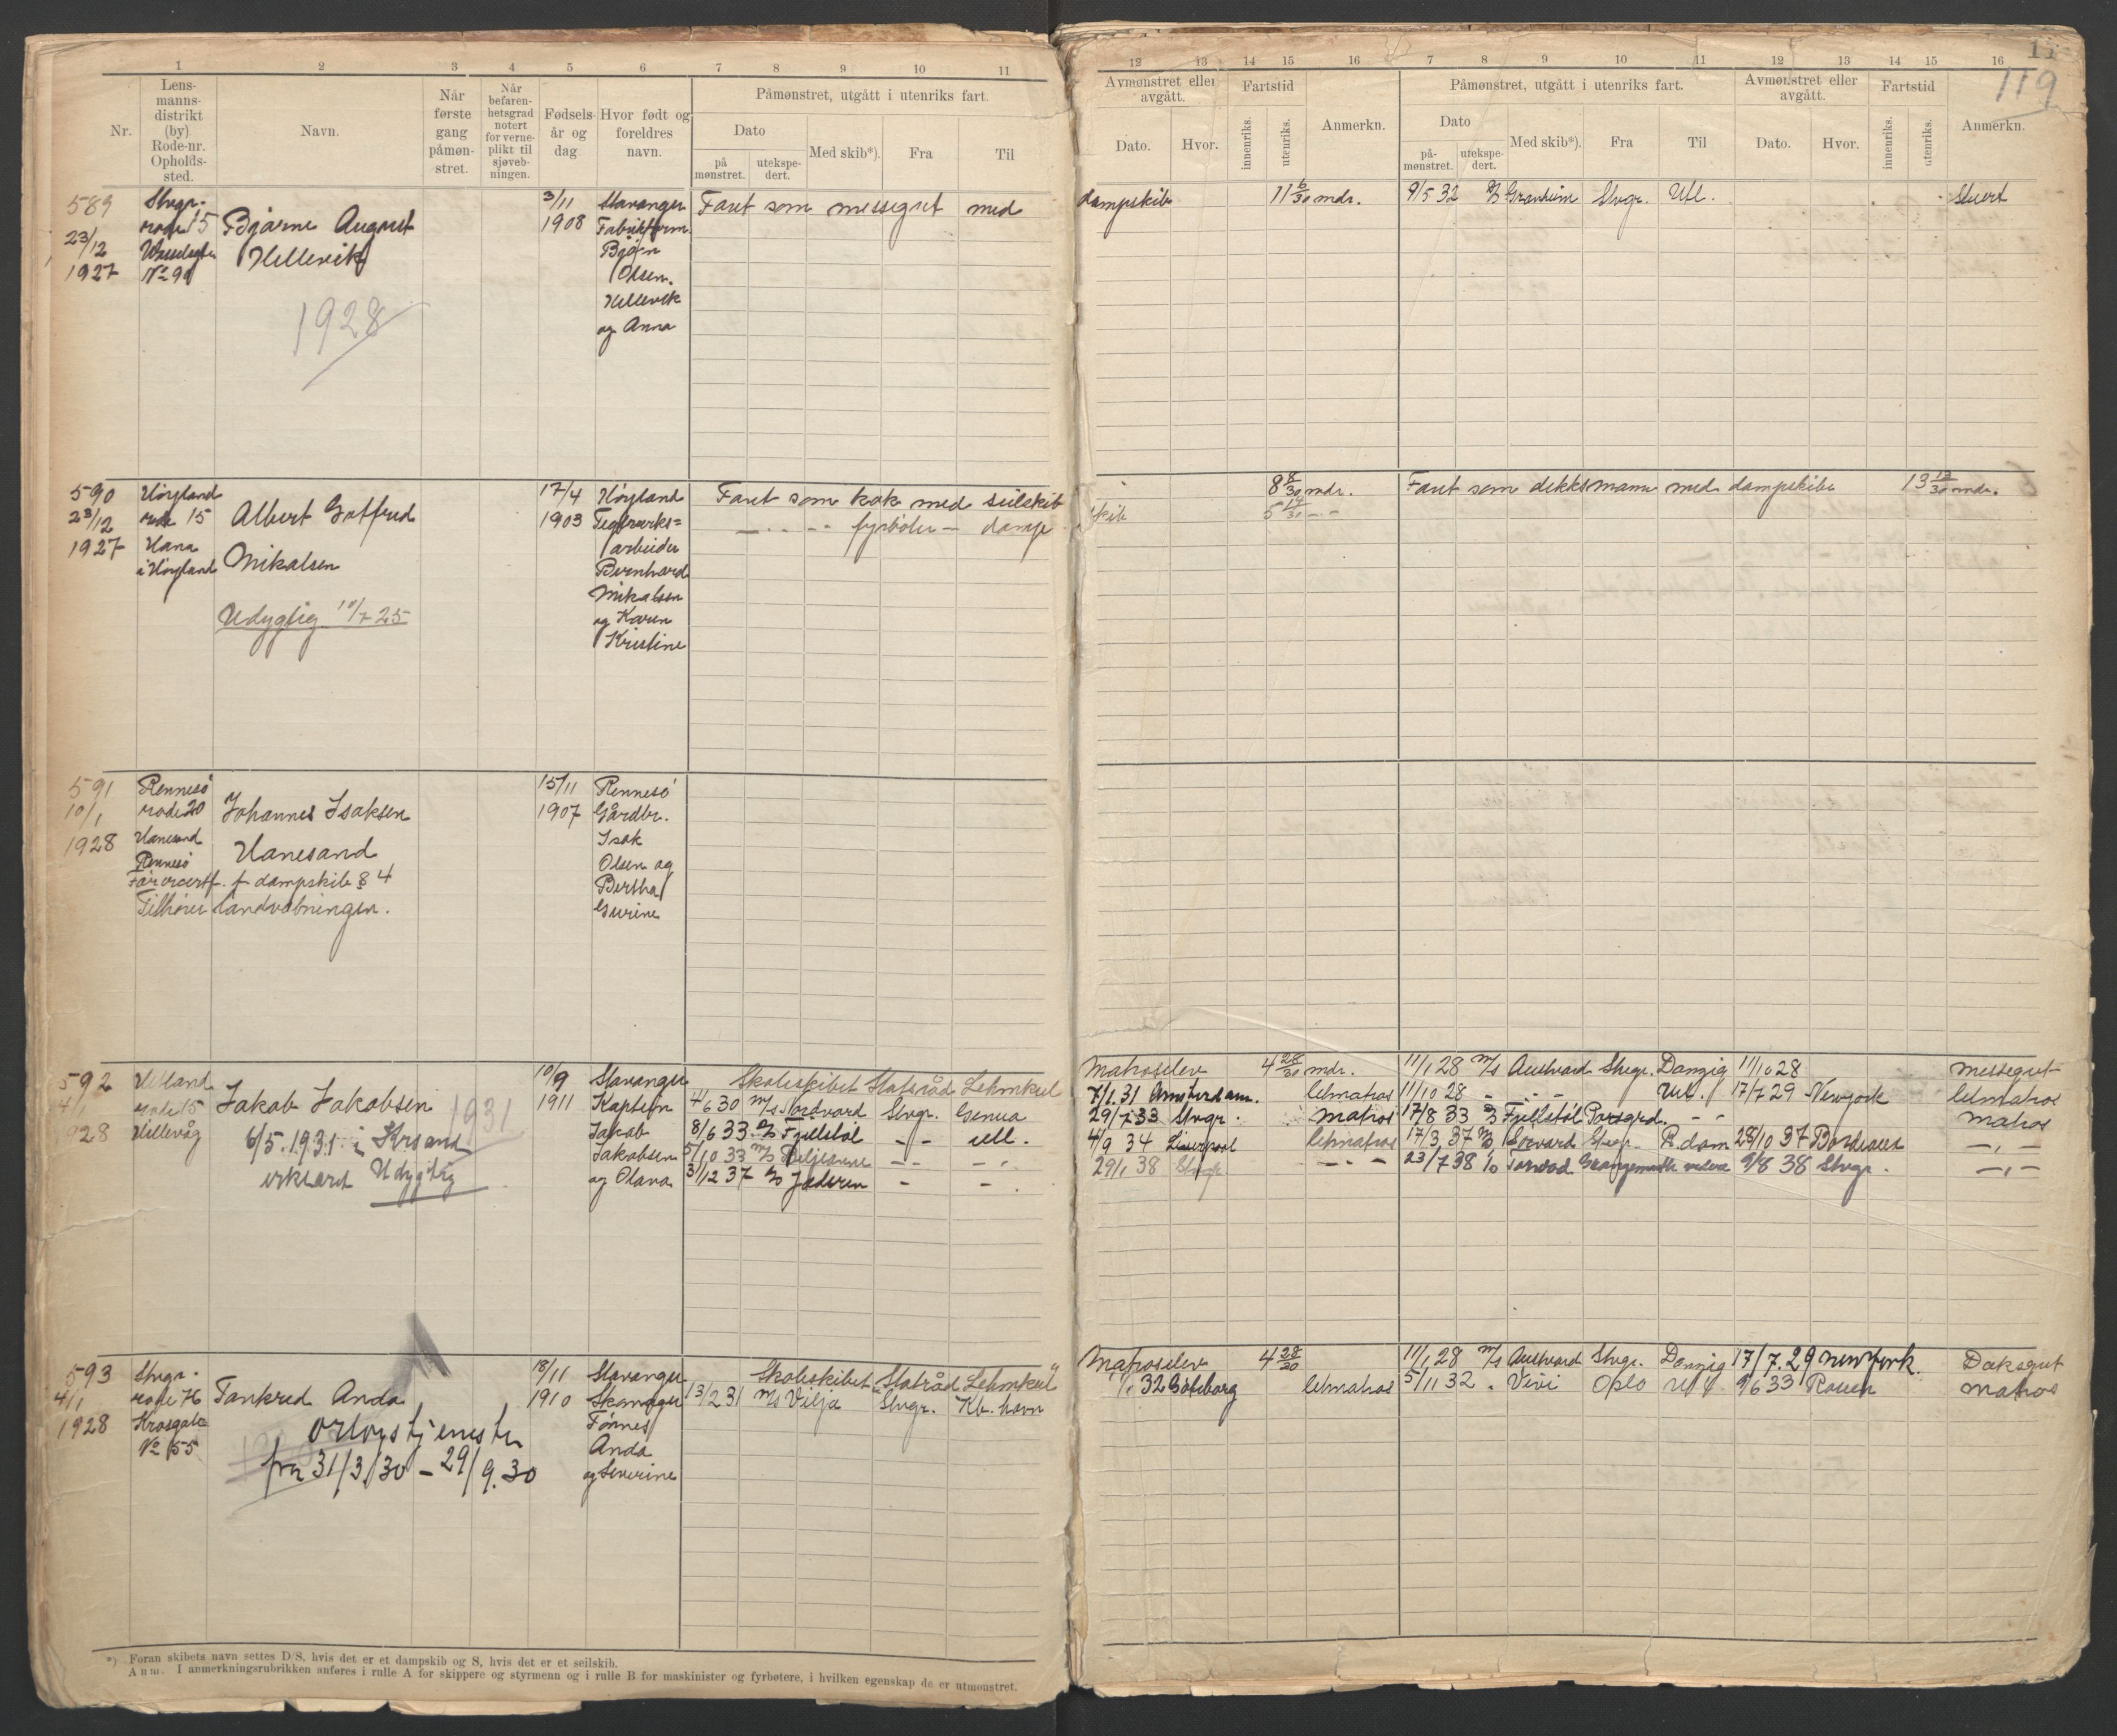 1 2 3 4 5 6 7 8 9 10 11
Lens-
manns-
distrikt
(by)
Rode-nr.
Opholds-
sted.
Nr.
Navn.
Når
første
gang
påmøn-
stret.
Når
befaren-
hetsgrad
notert
for verne-
plikt til
sjøveb-
ningen.
Fødsels-
år og
dag
Hvor født og
foreldres
navn.
Påmønstret, utgått i utenriks fart.
Dato
på
mønstret.
utekspe-
dert.
Med skib*).
Fra
Til
589 Stvgr. 3/11 Stavanger Faret som messegut med
rode 15 Bjarne August 1908
23/12 Hillevik Bjørn
1927 No 99 Olsen
Hillevik
og Anna
1928
590 Høyland 17/4 Høyland Faret som kok med seilskib
23/12 rode 15 Albert Gotfred 1903 Teglverks=
fyrbøter — damp
1927 Hana Mikalsen arbeider
i Høyland Bernhard
Mikalsen
og Karen
Kristine
Udygtig 10/7 25
591 Rennesø 15/11 Rennesø
10/1 rode 20 Johannes Isaksen 1907 Gårdbr.
1928 Hanesand Hanesand Isak
Rennesø Olsen og
f. dampskib § 4 Bertha
Tilhører landvæbningen. Gurine
592 Hetland 10/9 Stavanger Skoleskibet Statsråd Lehmkul
rode 15 Jakob Jakobsen 1911 Kaptein 4/6 30 M/S Nordvard Stvgr. Genua
1931
928 Hillevåg 6/5.1931 i Krsand Jakob 8/6 33 D/S Fjellstøl — — utl.
erklært Udygtig Jakobsen 5/10 33
og Olava 31/12 37 D/S Jæderen — —
593 Stvgr. 18/11 Stavanger Skoleskibet "Statsråd Lehmkul"
4/1 rode 76 Tankred Anda 1910 13/2 31 M/S Vilja Stvgr. Kb.havn
1928 orlogstjeneste Tønnes
No 155 fra 31/3/30 – 29/9.30 Anda
og Severine
*) Foran skibets navn settes D/S, hvis det er et dampskib og S, hvis det er et seilskib.
Anm. I anmerkningsrubrikken anføres i rulle A for skippere og styrmenn og i rulle B for maskinister og fyrbøtere, i hvilken egenskap de er utmønstret.
119
12 13 14 15 16 7 8 9 10 11 12 13 14 15 16
Avmønstret eller
avgått.
Dato.
Hvor.
Fartstid
innenriks.
utenriks.
Anmerkn.
Påmønstret, utgått i utenriks fart.
Dato
på-
mønstret.
utekspe-
dert.
Med skib*).
Fra
Til
Avmønstret eller
avgått.
Dato.
Hvor.
Fartstid
innenriks.
utenriks.
Anmerkn.
dampskib 11 6/30 mdr. 9/5 32 D/S Granheim Stvgr. Utl. Stuert
8 8/30 mdr. Faret som dekksmann med dampskibe 13 mdr.
skib
Matroselev 4 28/30 mdr. 11/1 28 M/S Austvard Stvgr. Danzig 11/10 28 messegut
31 Amsterdam. letmatros 11/10 28 Utl. 17/7 29 Newyork letmatros
29/7 33 Stvgr. matros 17/8 33 D/S Fjellstøl Porsgrd. matros
4/9 34 Liverpool letmatros 17/3 37 M/S Stvgr. R.dam 28/10 37 Bordeaux
29/1 38 Stvgr 23/7 38 9/8 38 Stvgr.
Matroselev 4 28/30 11/1 28 M/S Austvard Stvgr. Danzig 17/7.29 Newyork. Deksgut
32 Gøteborg letmatros 5/11 32 Vivi Oslo Utl. 9/6 33 Rouen matros